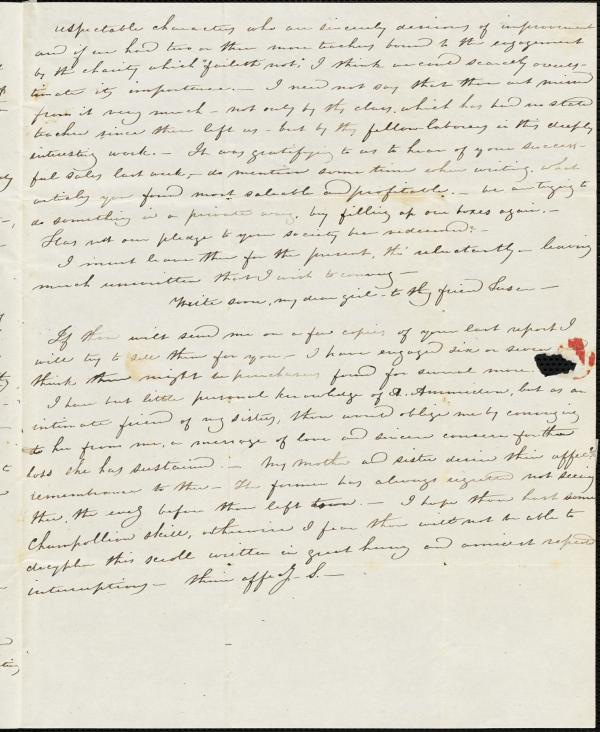 respectable characters who are sincerely desirous of improvement
and if we had two or three more teachers bound to the engagement
by the charity which "faileth not," I think we could scarcely overes-
timate its importance. — I need not say that thou art missed
from it very much — not only by thy class, which has had no stated
teacher since thou left us — but by thy fellow-laborers in this deeply
interesting work. — It was gratifying to us to hear of your success-
ful sales last week, — do mention some time when writing, what
articles you found most saleable and profitable. — we are trying to
do something in a private way, by filling up our boxes again. —
Has not our pledge to your society been redeemed? —
I must leave thee for the present, tho' reluctantly — leaving
much unwritten that I wish to convey —
Write soon, my dear girl — to thy friend Susan —
If thou wilt send me on a few copies of your last report I
will try to sell them for you — I have engaged six or seven
think there might be purchasers found for several more.
I have but little personal knowledge of A. Ammidon, but as an
intimate friend of my sisters, thou would oblige me by conveying
to her from me, a message of love and sincere concern for the
loss she has sustained. — My mother and sister desire their affec.
remembrance to thee — The former has always regretted not seeing
thee, the eveg before thou left town. — I hope thou hast some
Champollion skill, otherwise I fear thou wilt not be able to
decypher this scroll written in great hurry and amidst repeated
interruptions — thine affecy. S. —